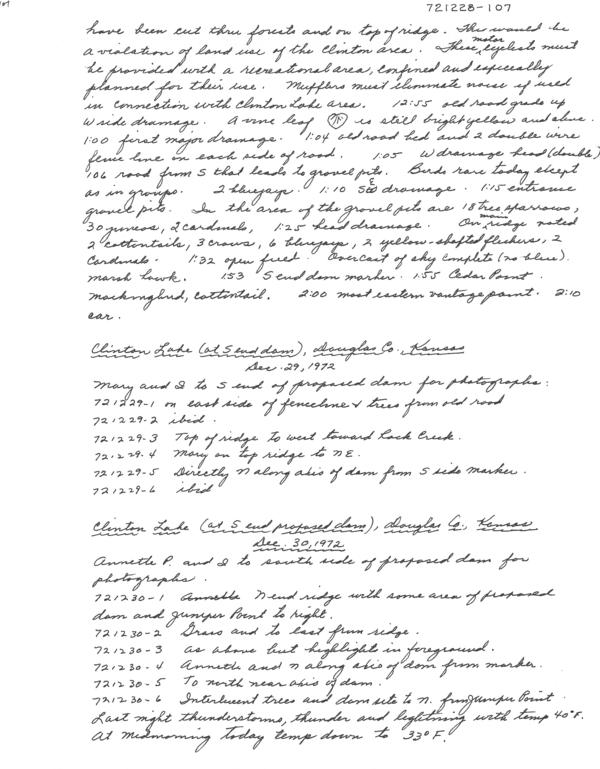 721228-107
have been cut thru forests and on top of ridge. This would be
a violation of land use of the Clinton area. These motor cyclists must
be provided with a recreational area, confined and especially
planned for their use. Mufflers must eliminate noise if used
in connection with Clinton Lake area. 12:55 old road grade up
W side drainage. A vine leaf is still bright yellow and alive.
1:00 first major drainage. 1:04 old road bed and 2 double wire
fence line on each side of road. 1:05 W drainage head (double)
1:06 road from S that leads to gravel pits. Birds rare today except
as in groups. 2 bluejays. 1:10 drainage. 1:15 entrance
gravel pits. In the area of the gravel pits are 18 tree sparrows,
30 juncos, 2 cardinals, 1:25 head drainage. On main ridge noted
2 cottontails, 3 crows, 6 bluejays, 2 yellow-shafted flickers, 2
Cardinals. 1:32 open field. Overcast of sky complete (no blue).
marsh hawk. 1:53 S end dam marker. 1:55 Cedar Point.
mockingbird, cottontail. 2:00 most eastern vantage point. 2:10
car.
Clinton Lake (at S end dam), Douglas Co., Kansas
Dec. 29, 1972
Mary and I to S end of proposed dam for photographs:
721229-1 on east side of fenceline & trees from old road
721229-2 ibid.
721229-3 Top of ridge to west toward Rock Creek.
721229-4 Mary on top ridge to NE.
721229-5 Directly N along axis of dam from S side marker.
721229-6 ibid
Clinton Lake (at S end proposed dam), Douglas Co., Kansas
Dec. 30, 1972
Annette P. and I to south side of proposed dam for
photographs.
721230-1 Annette N end ridge with some area of proposed
dam and Juniper Point to right.
721230-2 Grass and to east from ridge.
721230-3 as above but highlights in foreground.
721230-4 Annette and N along axis of dam from marker.
721230-5 To north near axis of dam.
721230-6 Interlucent trees and dam site to N. from Juniper Point.
Last night thunderstorms, thunder and lightning with temp 40°F.
At midmorning today temp down to 33°F.